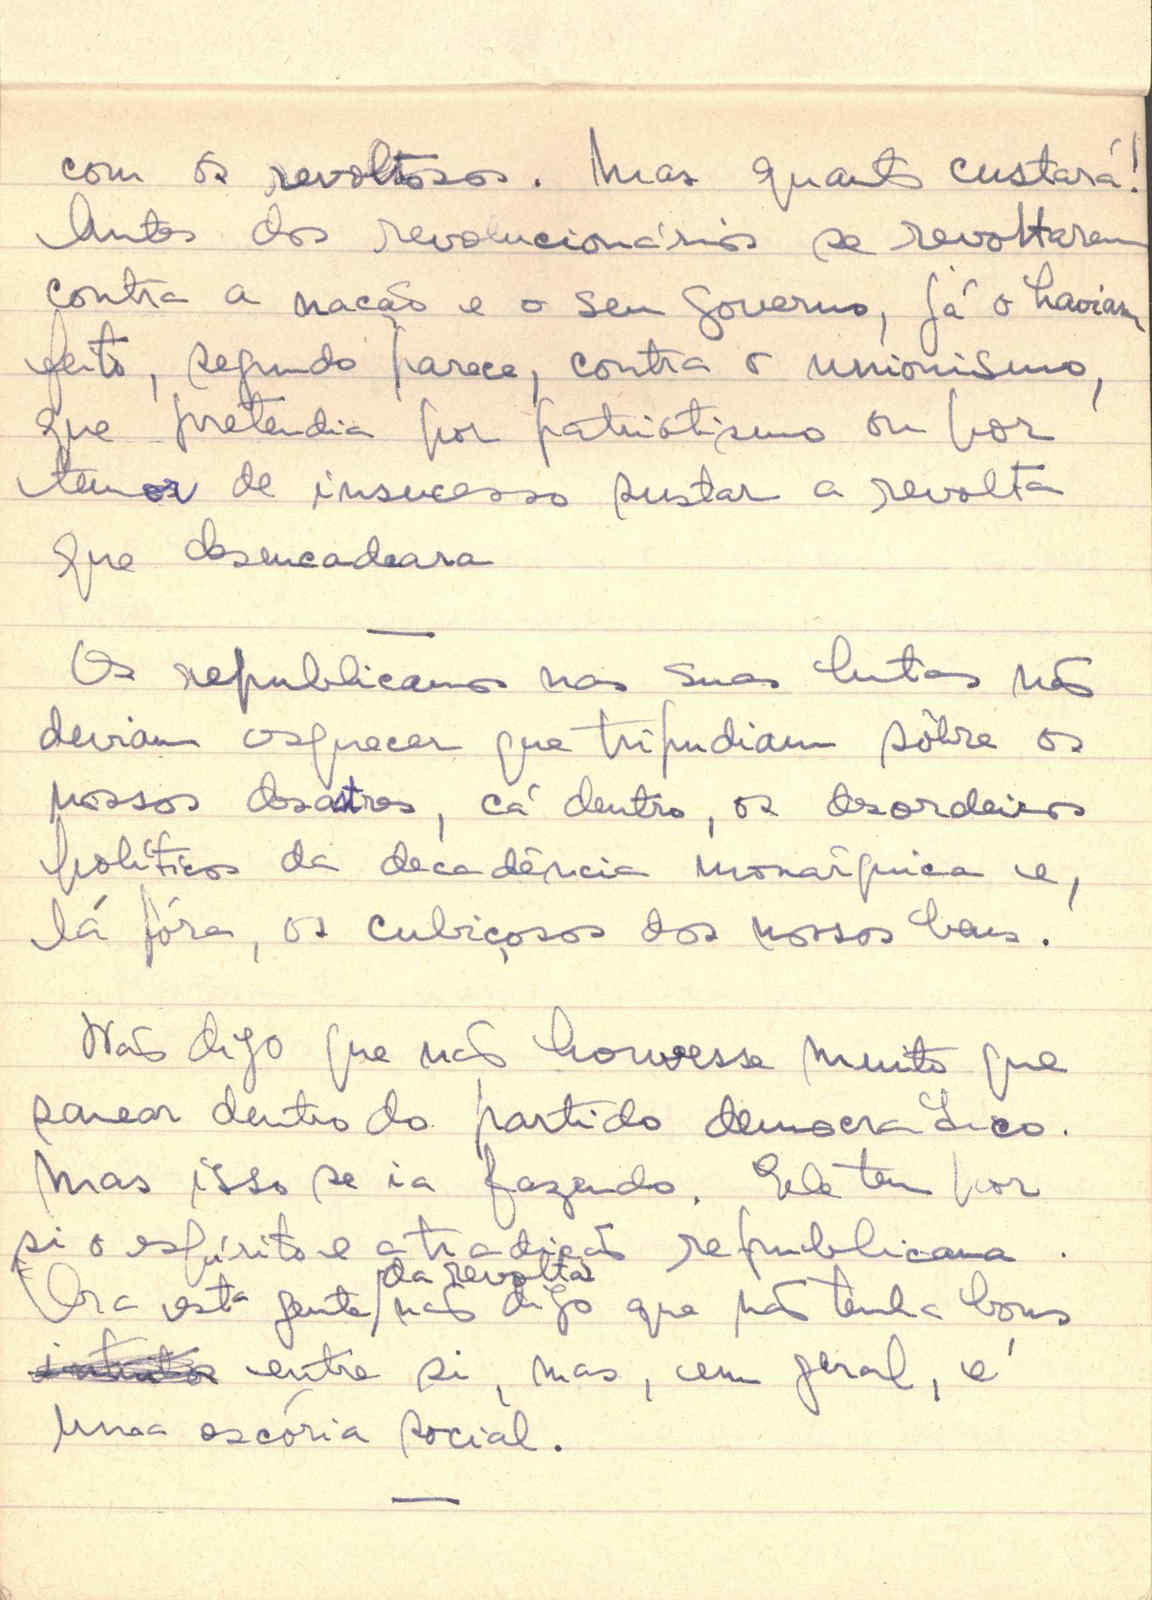 com os revoltosos. Mas quanto custará!
Antes dos revolucionários se revoltarem
contra a nação e o seu governo, já o haviam
feito, segundo parece, contra o unionismo,
que pretendia por patriotismo ou por
temor de insucesso sustar a revolta
que desencadeara
—
Os republicanos nas suas lutas não
deviam esquecer que tripudiam sôbre os
nossos desastres, cá dentro, os desordeiros
políticos da decadência monárquica e,
lá fóra, os cubiçosos dos nossos bens.
Não digo que não houvesse muito que
sanear dentro do partido democrático.
Mas isso se ia fazendo. Ele tem por
si o espírito e a tradição republicana.
da revolta
Ora esta gente / não digo que não tenha bons
entre si, mas, em geral, é
uma escória social.
—